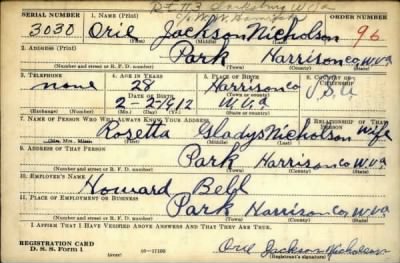 SERIAL NUMBER 1. NAME (Print) ORDER NUMBER
3030 Orie Jackson Nicholson 96
(First) (Middle) (Last)
2. ADDRESS (Print)
Park Harrison Co W.Va
(Number and street or R. F. D. number) (Town) (County) (State)
3. TELEPHONE 4. AGE IN YEARS 5. PLACE OF BIRTH 6. COUNTRY OF CITIZENSHIP
none 28 Harrison Co
DATE OF BIRTH (Town or county)
2-2-1912 W.Va
(Exchange) (Number) (Mo.) (Day) (Yr.) (State or country)
7. NAME OF PERSON WHO WILL ALWAYS KNOW YOUR ADDRESS 8. RELATIONSHIP OF THAT PERSON
Rosetta Gladys Nicholson Wife
(Mr., Mrs., Miss) (First) (Middle) (Last)
9. ADDRESS OF THAT PERSON
Park Harrison Co W.Va
(Number and street or R. F. D. number) (Town) (County) (State)
10. EMPLOYER'S NAME
Howard Bell
11. PLACE OF EMPLOYMENT OR BUSINESS
Park Harrison Co W.Va
(Number and street or R. F. D. number) (Town) (County) (State)
I AFFIRM THAT I HAVE VERIFIED ABOVE ANSWERS AND THAT THEY ARE TRUE.
REGISTRATION CARD
D. S. S. Form 1 (over) 16-17105 Orie Jackson Nicholson
(Registrant's signature)